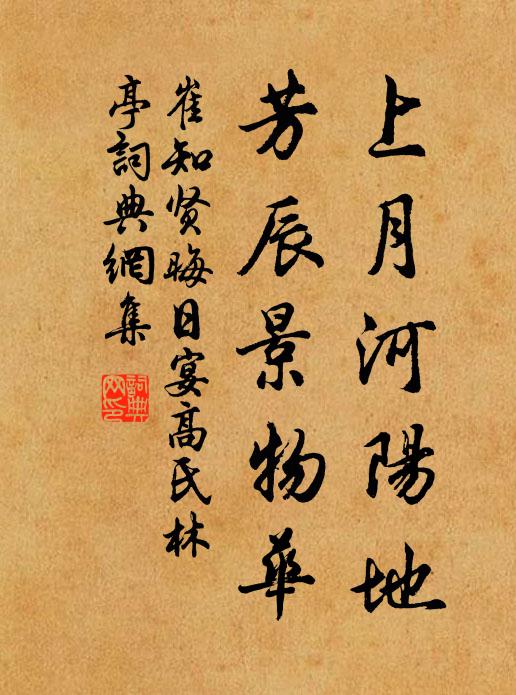 上月河陽地
芳辰景物華
崔知贤晦日宴高氏林
亭詞典網集
詞典網印